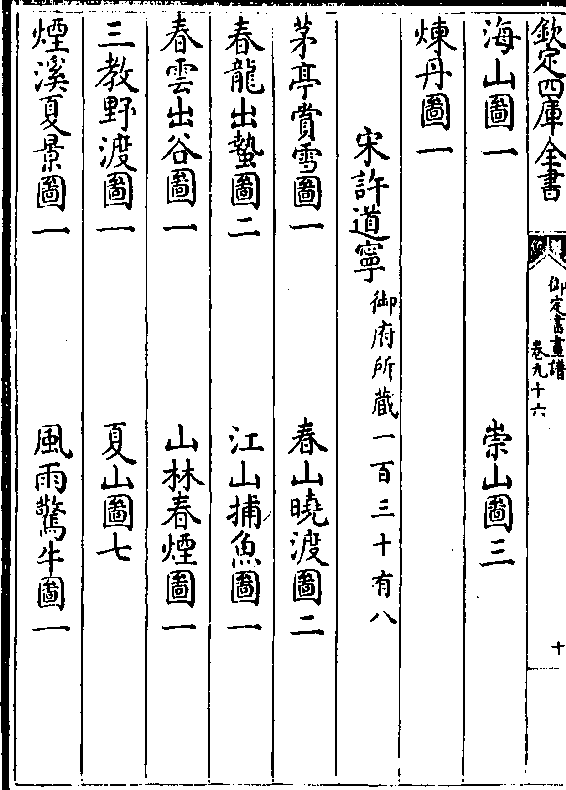 欽定四庫全書
御定書畫譜
卷九十六
十
海山圖一 崇山圖三
煉丹圖一
宋許道寧御府所藏一百三十有八
茅亭賞雪圖一 春山曉渡圖二
春龍出蟄圖二 江山捕魚圖一
春雲出谷圖一 山林春煙圖一
三教野渡圖一 夏山圖七
煙溪夏景圖一 風雨驚牛圖一